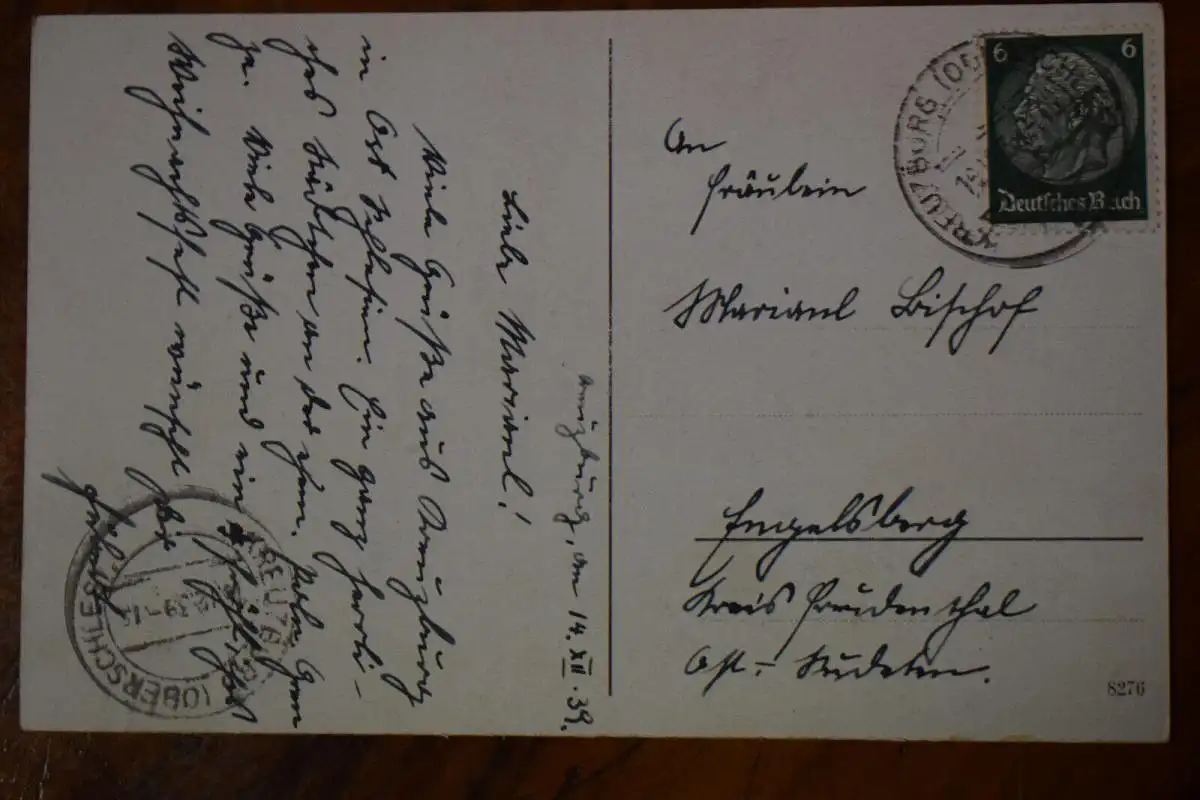 Kreuzburg, am 14.XII.39.
Liebe Marianl!
Viele Grüße aus Kreuzburg
in Ost Schlesien. Ein ganz herrli-
ches Städtchen an der
ja. Viele Grüße und ein
Weihnachtsfest wünscht Dir
An
Fräulein
Marianl Bischof
Engelsberg
Kreis Freudenthal
Ost-Sudeten.
8276
6 6
Deutsches Reich
KREUZBURG (OBERSCHLES)
KREUZBURG
(OBERSCHLES)